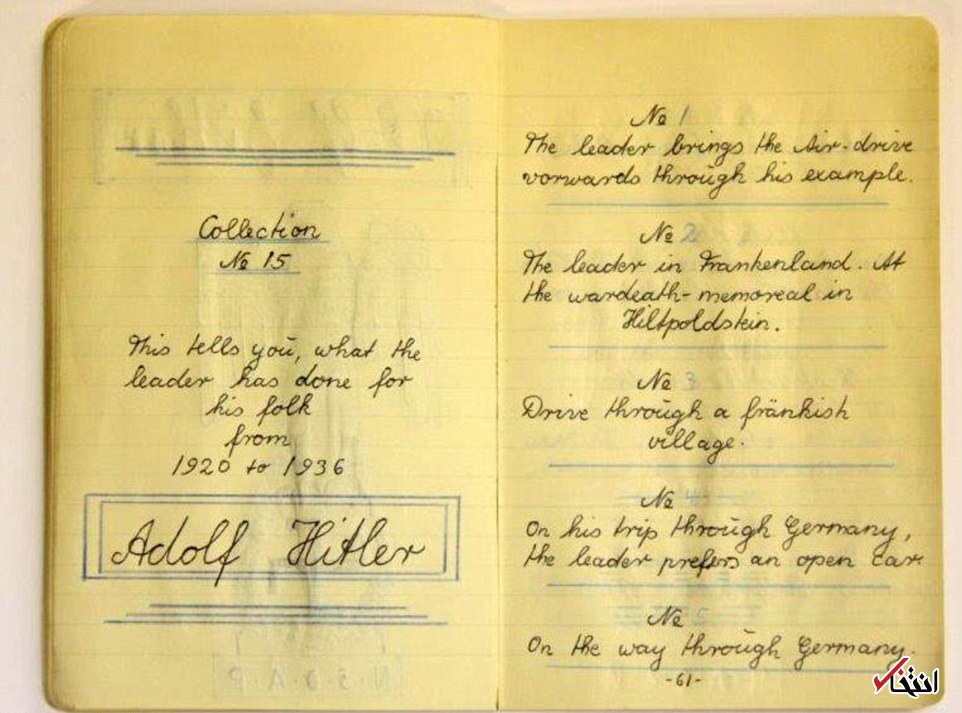 Collection
№ 15
This tells you, what the
leader has done for
his folk
from
1920 to 1936
Adolf Hitler
N.S.D.A.P
№ 1
The leader brings the Air-drive
vorwards through his example.
№ 2
The leader in Frankenland. At
the wardeath-memoreal in
Hiltpoldstein.
№ 3
Drive through a fränkish
village.
№ 4
On his trip through Germany,
the leader prefers an open car.
№ 5
On the way through Germany.
-61-
انتخاب